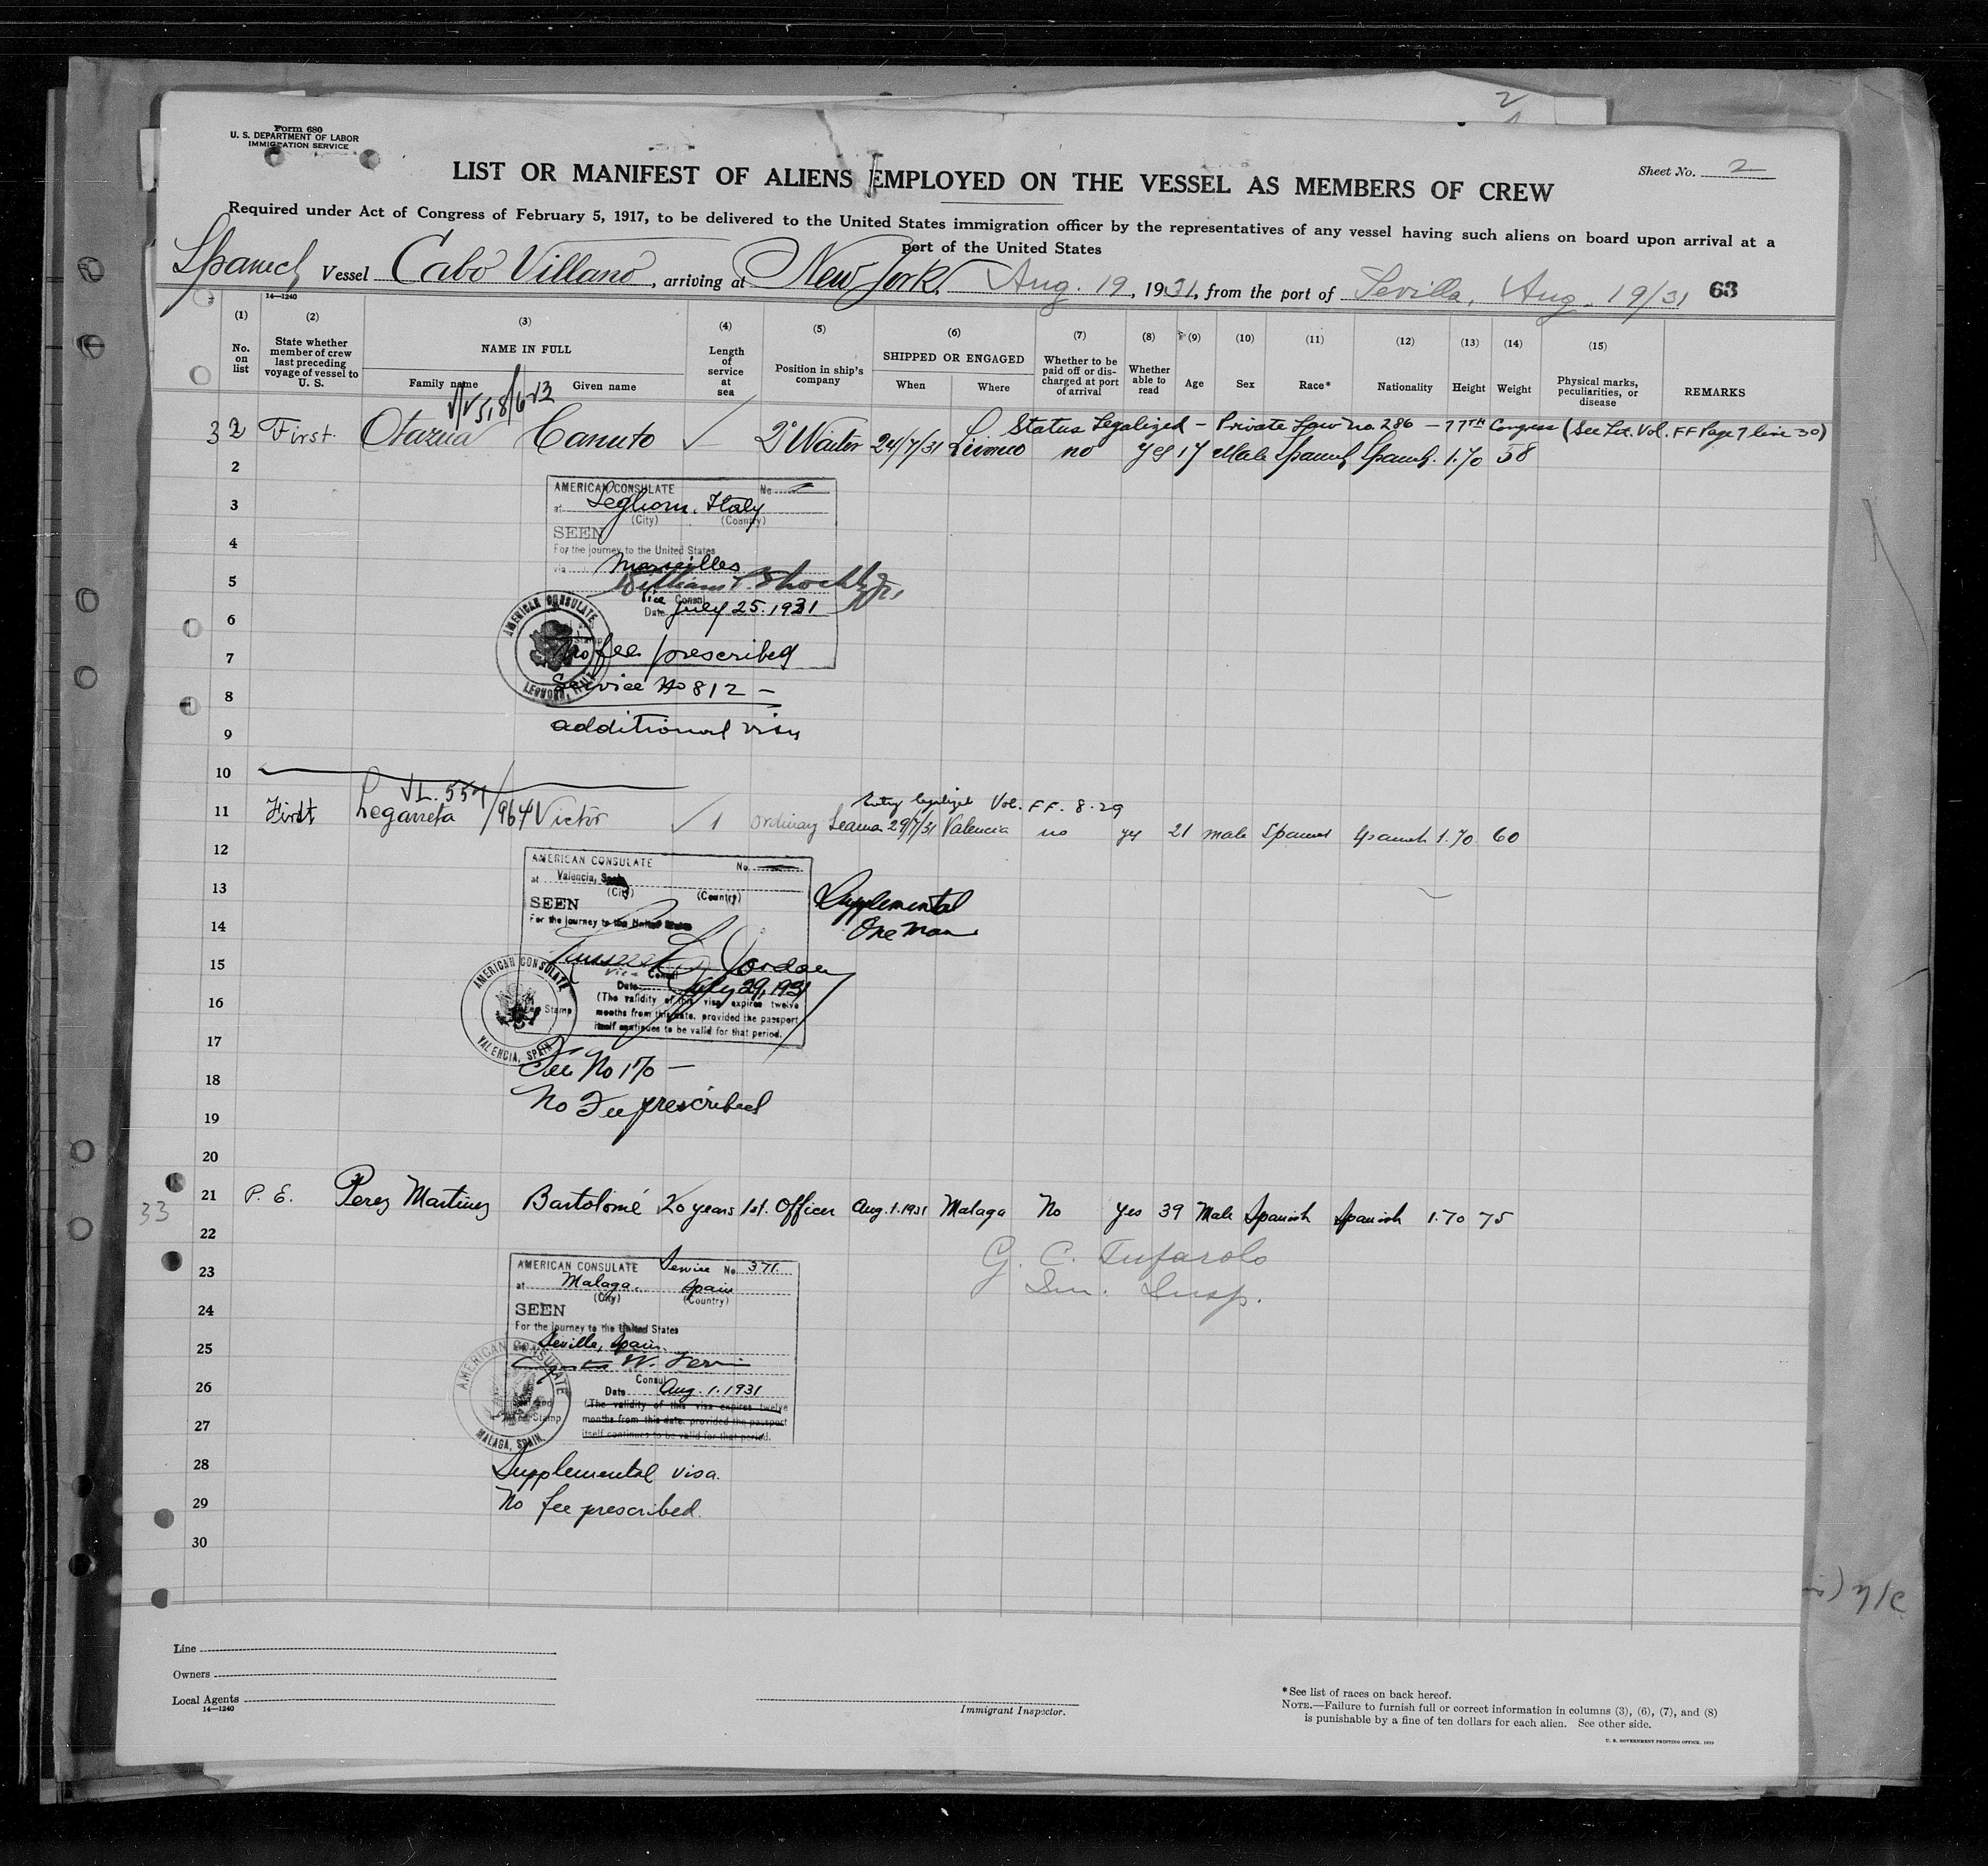 2
Form 680
U. S. DEPARTMENT OF LABOR
IMMIGRATION SERVICE
Sheet No. 2
LIST OR MANIFEST OF ALIENS EMPLOYED ON THE VESSEL AS MEMBERS OF CREW
Required under Act of Congress of February 5, 1917, to be delivered to the United States immigration officer by the representatives of any vessel having such aliens on board upon arrival at a
port of the United States
Spanish Vessel Cabo Villano, arriving at New York, Aug. 19, 1931, from the port of Sevilla, Aug. 19/31 63
14—1240
(1) (2) (3) (4) (5) (6) (7) (8) (9) (10) (11) (12) (13) (14) (15)
No. on list
State whether member of crew last preceding voyage of vessel to U. S.
NAME IN FULL
Family name Given name
Length of service at sea
Position in ship's company
SHIPPED OR ENGAGED
When Where
Whether to be paid off or discharged at port of arrival
Whether able to read
Age Sex Race* Nationality Height Weight
Physical marks, peculiarities, or disease
REMARKS
Status Legalized – Private Law no 286 – 77TH Congress (See Vol. FF Page 7 line 30)
32 First Otazua Canuto 2º Waiter 24/7/31 no yes 17 Male Spanish Spanish 1.70 58
2
AMERICAN CONSULATE No.
3
at Leghorn, Italy
(City) (Country)
SEEN
4
For the journey to the United States
via Marseilles
5
Vice Consul
Date July 25, 1931
6
AMERICAN CONSULATE
LEGHORN, ITALY
No fee prescribed
7
Service No 812 –
8
additional visa
9
10
VL. 559/964
Entry legalized Vol. FF. 8-29
11 First Legarreta Victor 1 ordinary Seaman 29/7/31 Valencia no yes 21 male Spanish Spanish 1.70 60
12
AMERICAN CONSULATE No.
at Valencia, Spain
13
(City) (Country)
Supplemental
SEEN
One Man
14
For the journey to the United States
15
Jordan
Vice Consul
Date July 29, 1931
16
(The validity of this visa expires twelve
months from this date, provided the passport
itself continues to be valid for that period.
AMERICAN CONSULATE
VALENCIA, SPAIN
17
No 170 –
18
No Fee prescribed
19
20
33
21 P. E. Perez Martinez Bartolomé 20 years 1st. Officer Aug. 1. 1931 Malaga No Yes 39 Male Spanish Spanish 1.70 75
22
G. C. Tufarolo
Imm. Insp.
23
AMERICAN CONSULATE Service No. 371
at Malaga, Spain
(City) (Country)
24
SEEN
For the journey to the United States
25
Seville, Spain
W.
Consul
26
Date Aug. 1. 1931
(The validity of this visa expires twelve
27
months from this date, provided the passport
itself continues to be valid for that period.
AMERICAN CONSULATE
MALAGA, SPAIN.
28
Supplemental visa.
29
No fee prescribed.
30
Line
Owners
Local Agents
14—1240
Immigrant Inspector.
*See list of races on back hereof.
NOTE.—Failure to furnish full or correct information in columns (3), (6), (7), and (8)
is punishable by a fine of ten dollars for each alien. See other side.
U. S. GOVERNMENT PRINTING OFFICE